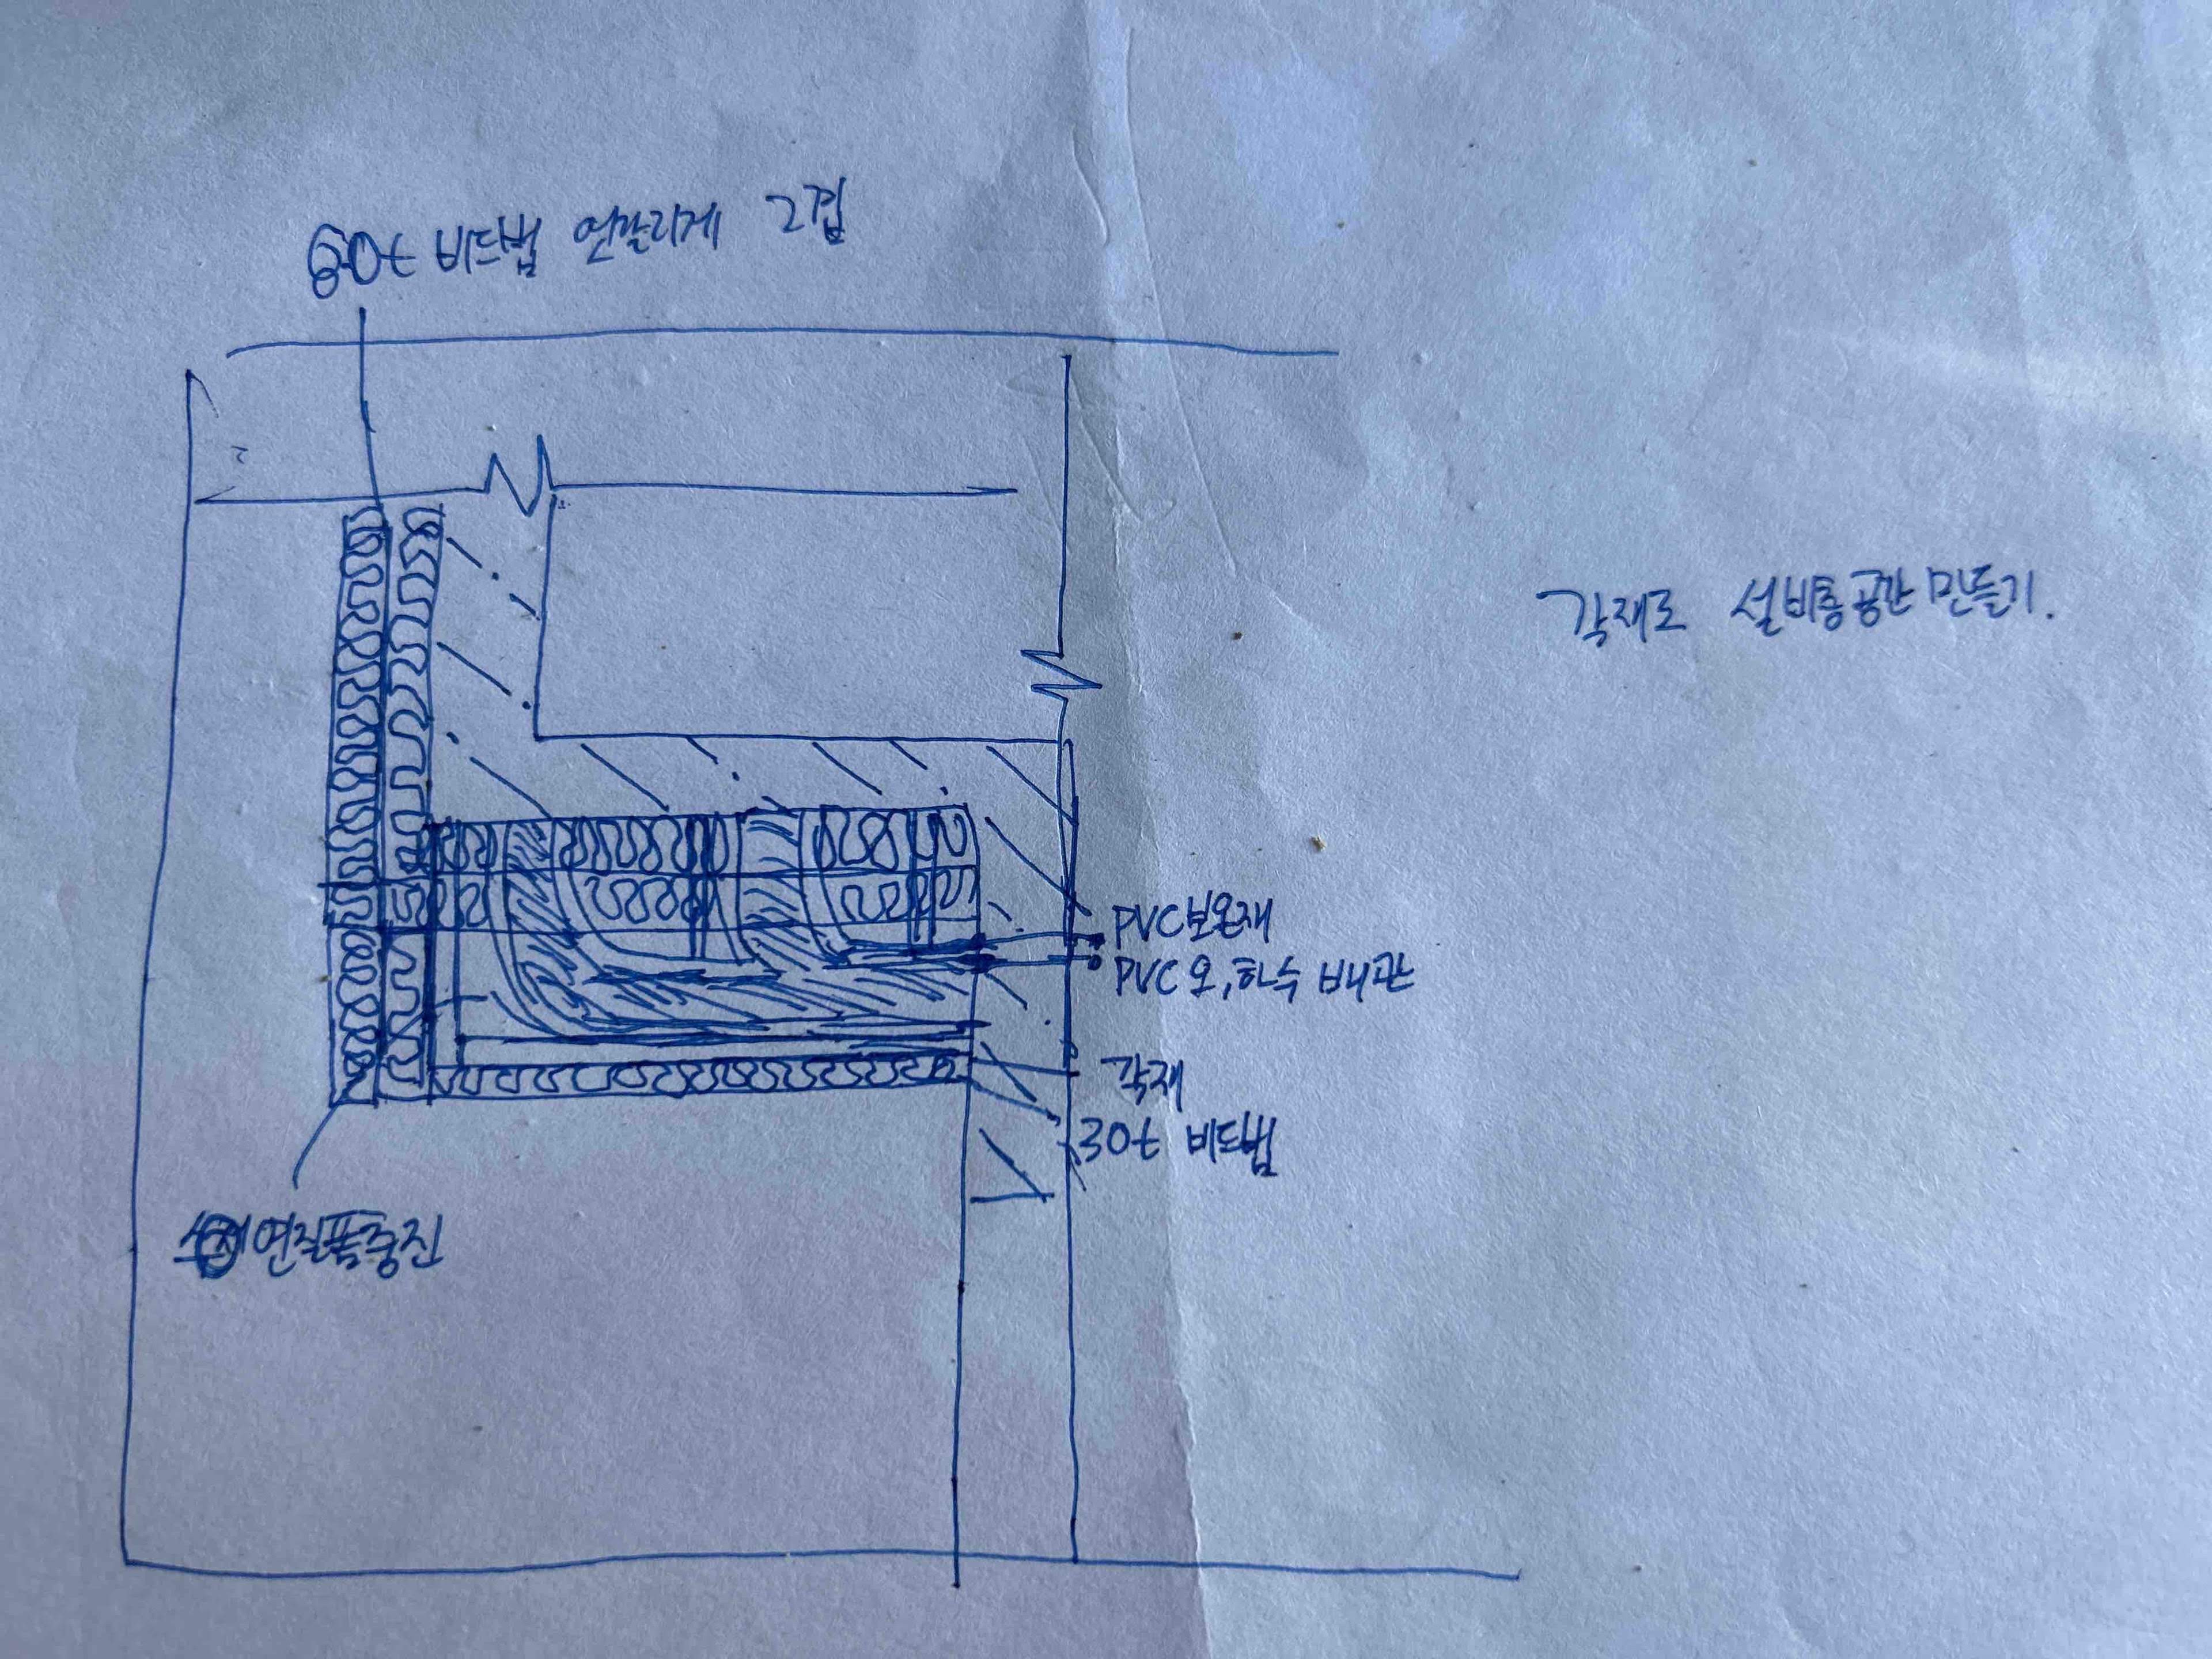 60t 비드법 엇갈리게 2겹
각재로 설비통공간 만들기.
PVC보온재
PVC 오,하수 배관
각재
30t 비드법
연질폼충진